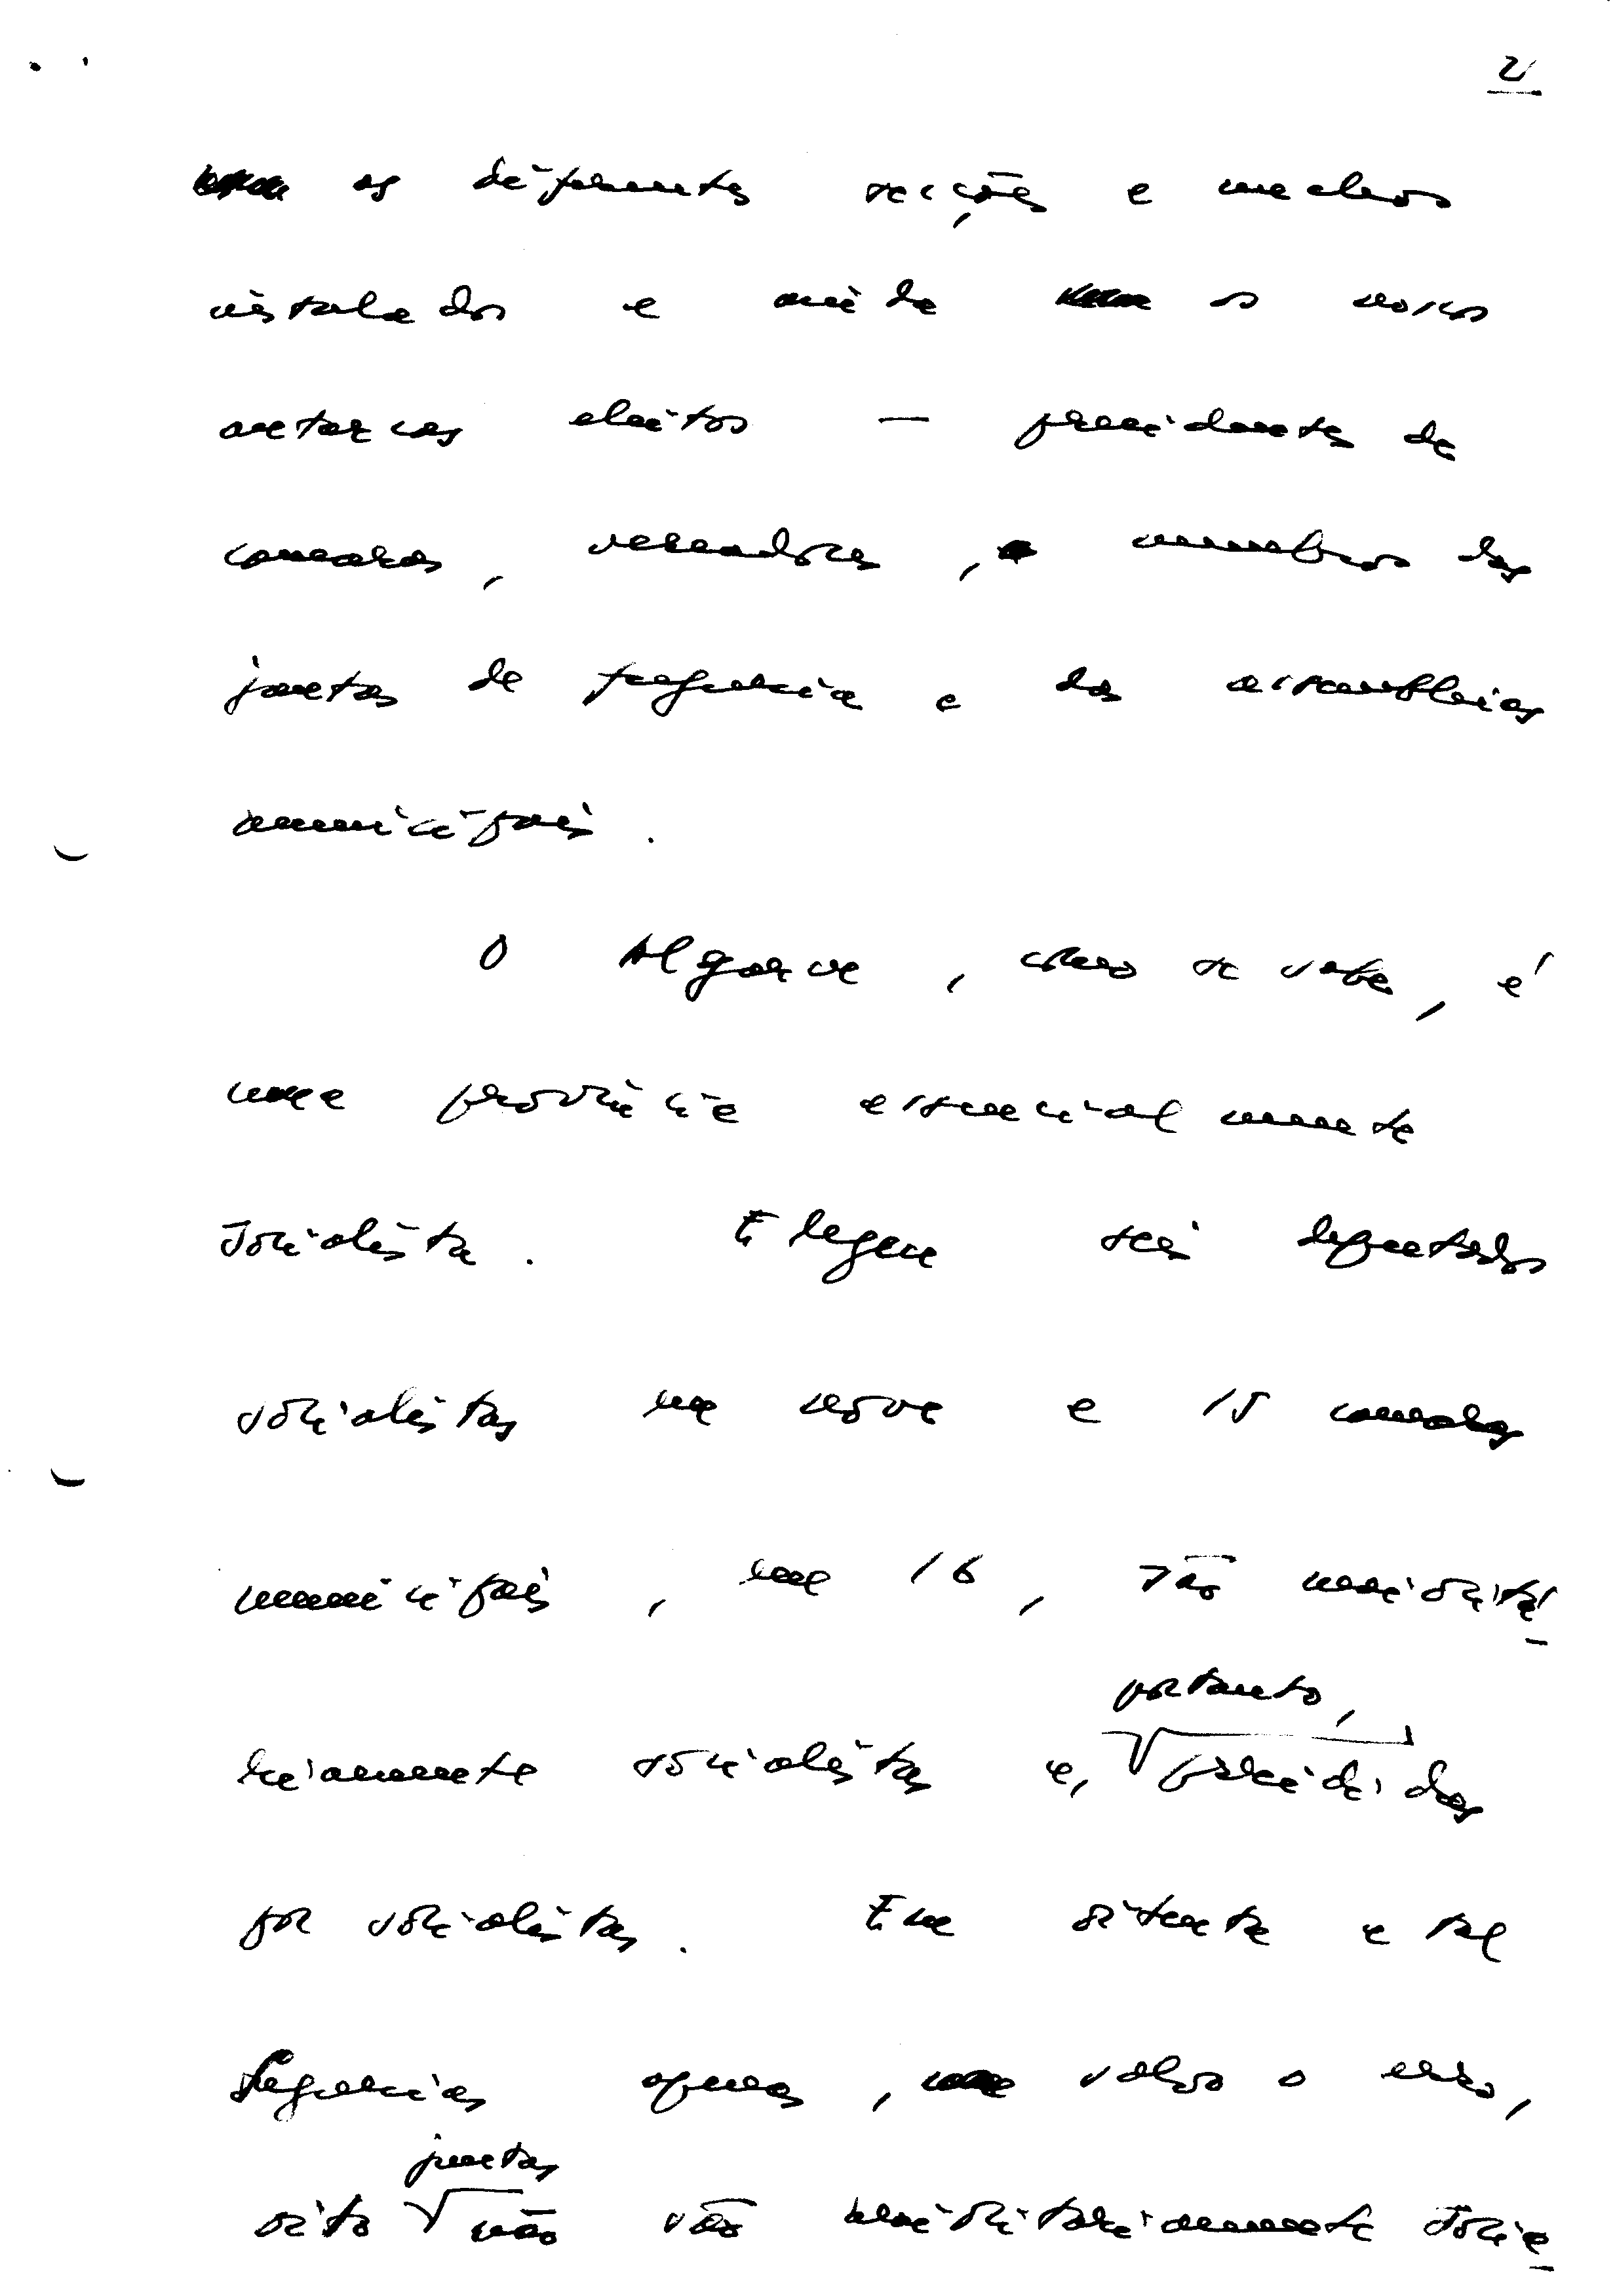 2
as diferentes secções e nucleos
instalados e ainda os nossos
autarcas eleitos — presidentes de
camaras, vereadores, membros das
juntas de freguesia e das assembleias
municipais.
O Algarve, como se sabe, é
uma província essencialmente
socialista. Elegeu seis deputados
socialistas em nove e 15 camaras
municipais, em 16, são maioritá-
portanto,
riamente socialistas e, presididas
por socialistas. Em sitenta e tal
freguesias apenas, salvo o erro,
juntas
oito não são maioritariamente socia-